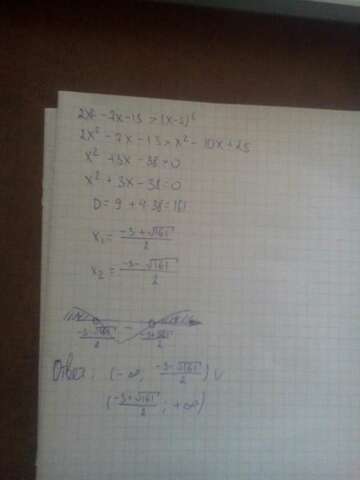 2x² - 7x - 13 > (x-5)²
2x² - 7x - 13 > x² - 10x + 25
x² + 3x - 38 > 0
x² + 3x - 38 = 0
D = 9 + 4·38 = 161
x₁ = (-3+√161)/2
x₂ = (-3-√161)/2
(-3-√161)/2 - (-3+√161)/2
Ответ: (-∞; (-3-√161)/2) ∪
((-3+√161)/2; +∞)